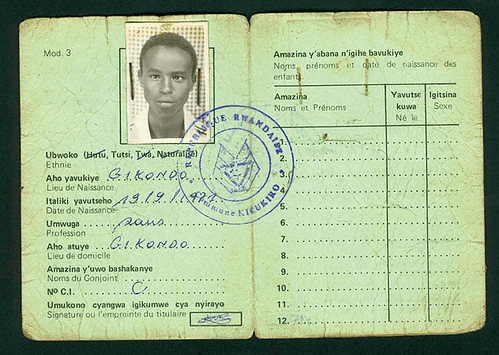 Mod. 3
REPUBLIQUE RWANDAISE
Commune KICUKIRO
Ubwoko (Hutu, Tutsi, Twa, Naturalisé)
Ethnie
Aho yavukiye GIKONDO
Lieu de Naissance
Italiki yavutseho
Date de Naissance
Umwuga sans
Profession
Aho atuye GIKONDO
Lieu de domicile
Amazina y'uwo bashakanye
Noms du Conjoint
Nº C.I.
Umukono cyangwa igikumwe cya nyirayo
Signature ou l'empreinte du titulaire
Amazina y'abana n'igihe bavukiye
Noms, prénoms et date de naissance des
enfants
Amazina
Noms et Prénoms
Yavutse
kuwa
Né le
Igitsina
Sexe
1.
2.
3.
4.
5.
6.
7.
8.
9.
10.
11.
12.